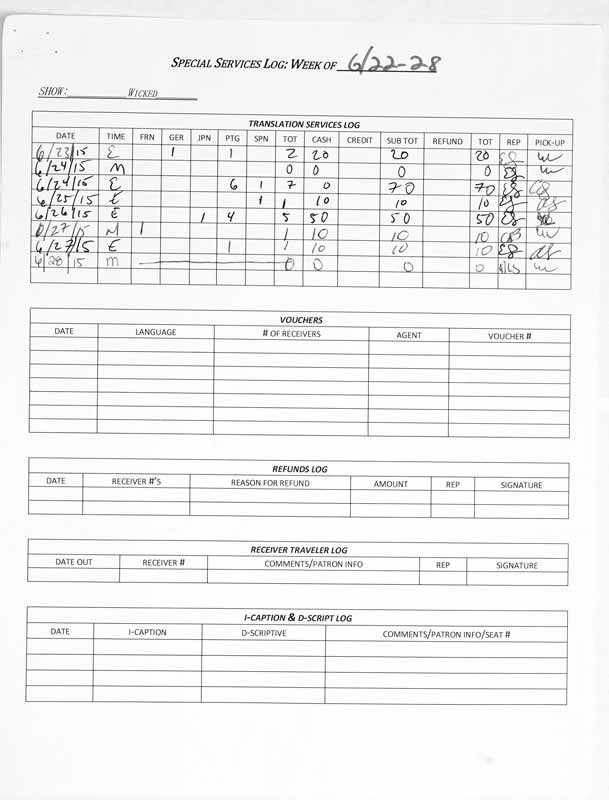 SPECIAL SERVICES LOG: WEEK OF 6/22-28
SHOW: WICKED
TRANSLATION SERVICES LOG
DATE TIME FRN GER JPN PTG SPN TOT CASH CREDIT SUB TOT REFUND TOT REP PICK-UP
6/23/15 E 1 1 2 20 20 20 ES
6/24/15 M 0 0 0 0 ES
6/24/15 E 6 1 7 0 70 70 ES
6/25/15 E 1 1 10 10 10 ES
6/26/15 E 1 4 5 50 50 50 ES
6/27/15 M 1 1 10 10 10
6/27/15 E 1 1 10 10 10 ES
6/28/15 M 0 0 0 0
VOUCHERS
DATE LANGUAGE # OF RECEIVERS AGENT VOUCHER #
REFUNDS LOG
DATE RECEIVER #'S REASON FOR REFUND AMOUNT REP SIGNATURE
RECEIVER TRAVELER LOG
DATE OUT RECEIVER # COMMENTS/PATRON INFO REP SIGNATURE
I-CAPTION & D-SCRIPT LOG
DATE I-CAPTION D-SCRIPTIVE COMMENTS/PATRON INFO/SEAT #